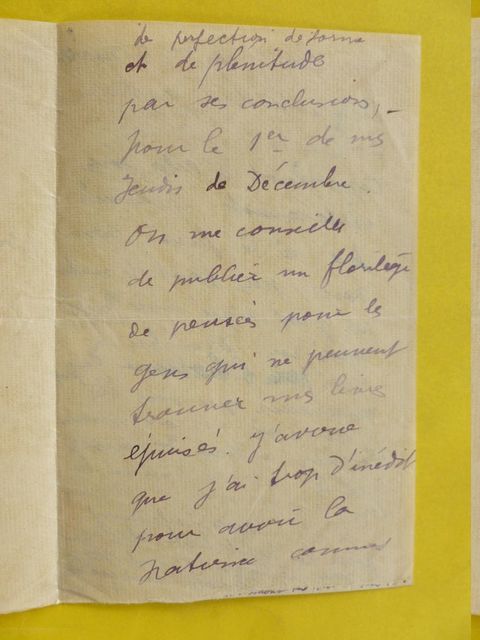 de perfection de forme
et de plénitude
par ses conclusions, —
pour le 1er de mes
Jeudis de Décembre.
On me conseille
de publier un florilège
de pensées pour les
gens qui ne peuvent
trouver mes livres
épuisés. J'avoue
que j'ai trop d'inédit
pour avoir la